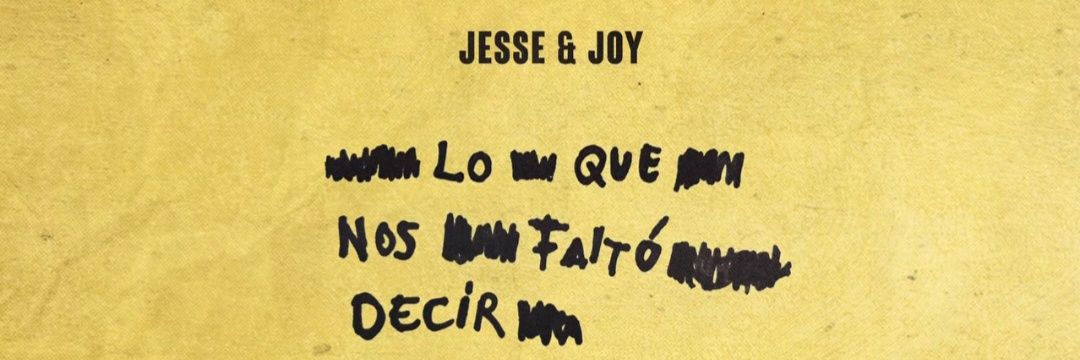 JESSE & JOY
LO QUE
NOS FAltÓ
DECÍR